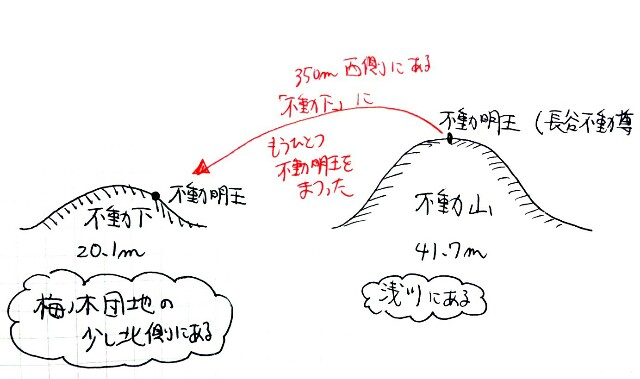 350m 西側にある
「不動下」に
もうひとつ
不動明王を
まつった
不動明王（長谷不動尊
不動明王
不動下
20.1m
不動山
41.7m
梅ノ木団地の
少し北側にある
浅川にある